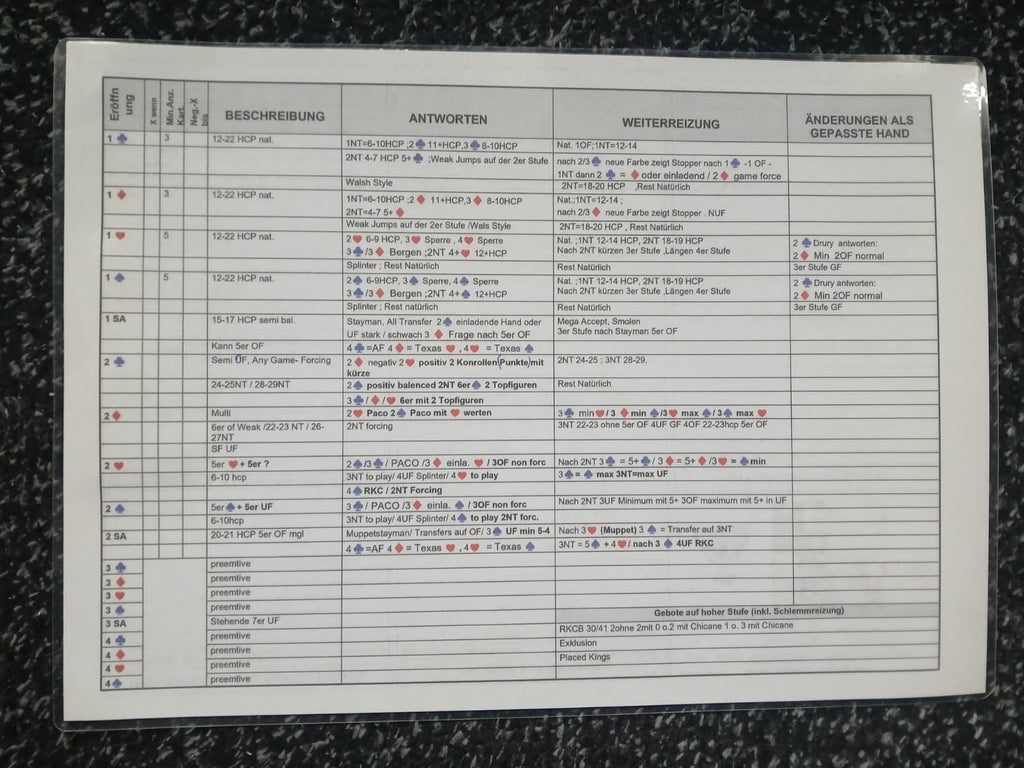 Eröffn ung X wenn Min.Anz. Kart. Neg.-X bis BESCHREIBUNG ANTWORTEN WEITERREIZUNG ÄNDERUNGEN ALS GEPASSTE HAND
1 ♣ 3 12-22 HCP nat. 1NT=6-10HCP ;2♣ 11+HCP,3♣ 8-10HCP Nat. 1OF;1NT=12-14
2NT 4-7 HCP 5+ ♣ ;Weak Jumps auf der 2er Stufe nach 2/3 ♣ neue Farbe zeigt Stopper nach 1 ♣ -1 OF -
1NT dann 2 ♣ = ♦ oder einladend / 2 ♦ game force
Walsh Style 2NT=18-20 HCP ,Rest Natürlich
1 ♦ 3 12-22 HCP nat. 1NT=6-10HCP ;2 ♦ 11+HCP,3 ♦ 8-10HCP Nat.;1NT=12-14 ;
2NT=4-7 5+ ♦ nach 2/3 ♦ neue Farbe zeigt Stopper . NUF
Weak Jumps auf der 2er Stufe /Wals Style 2NT=18-20 HCP , Rest Natürlich
1 ♥ 5 12-22 HCP nat. 2♥ 6-9 HCP, 3♥ Sperre , 4♥ Sperre Nat. ;1NT 12-14 HCP, 2NT 18-19 HCP 2 ♣ Drury antworten:
3 ♣/3 ♦ Bergen ;2NT 4+♥ 12+HCP Nach 2NT kürzen 3er Stufe ,Längen 4er Stufe 2 ♦ Min 2OF normal
Splinter ; Rest Natürlich Rest Natürlich 3er Stufe GF
1 ♠ 5 12-22 HCP nat. 2♠ 6-9HCP, 3♠ Sperre, 4♠ Sperre Nat. ;1NT 12-14 HCP, 2NT 18-19 HCP 2 ♣ Drury antworten:
3♣/3♦ Bergen ;2NT 4+♠ 12+HCP Nach 2NT kürzen 3er Stufe ,Längen 4er Stufe 2 ♦ Min 2OF normal
Splinter ; Rest natürlich Rest Natürlich 3er Stufe GF
1 SA 15-17 HCP semi bal. Stayman, All Transfer 2♠ einladende Hand oder Mega Accept, Smolen
UF stark / schwach 3 ♦ Frage nach 5er OF 3er Stufe nach Stayman 5er OF
Kann 5er OF 4 ♣=AF 4 ♦ = Texas ♥ , 4♥ = Texas ♠
2 ♣ Semi OF, Any Game- Forcing 2 ♦ negativ 2♥ positiv 2 Konrollen(Punkte)mit 2NT 24-25 ; 3NT 28-29,
kürze
24-25NT / 28-29NT 2♠ positiv balenced 2NT 6er♠ 2 Topfiguren Rest Natürlich
3♣ / ♦ / ♥ 6er mit 2 Topfiguren
2 ♦ Multi 2♥ Paco 2♠ Paco mit ♥ werten 3♣ min♥ / 3 ♦ min ♠ /3♥ max ♠ / 3♠ max ♥
6er of Weak /22-23 NT / 26- 2NT forcing 3NT 22-23 ohne 5er OF 4UF GF 4OF 22-23hcp 5er OF
27NT
SF UF
2 ♥ 5er ♥ + 5er ? 2♠ /3♣ / PACO /3 ♦ einla. ♥ / 3OF non forc Nach 2NT 3♣ = 5+♣ / 3 ♦ = 5+♦ /3♥ = ♠min
6-10 hcp 3NT to play/ 4UF Splinter/ 4♥ to play 3♠ = ♠ max 3NT=max UF
4 ♣ RKC / 2NT Forcing
2 ♠ 5er♠ + 5er UF 3♣ / PACO /3♦ einla. ♠ / 3OF non forc Nach 2NT 3UF Minimum mit 5+ 3OF maximum mit 5+ in UF
6-10hcp 3NT to play/ 4UF Splinter/ 4♠ to play 2NT forc.
2 SA 20-21 HCP 5er OF mgl Muppetstayman/ Transfers auf OF/ 3♠ UF min 5-4 Nach 3♥ (Muppet) 3 ♠ = Transfer auf 3NT
4 ♣=AF 4 ♦ = Texas ♥ , 4♥ = Texas ♠ 3NT = 5♠ + 4♥/ nach 3 ♠ 4UF RKC
3 ♣ preemtive
3 ♦ preemtive
3 ♥ preemtive
3 ♠ preemtive Gebote auf hoher Stufe (inkl. Schlemmreizung)
3 SA Stehende 7er UF RKCB 30/41 2ohne 2mit 0 o.2 mit Chicane 1 o. 3 mit Chicane
4 ♣ preemtive Exklusion
4 ♦ preemtive Placed Kings
4 ♥ preemtive
4 ♠ preemtive